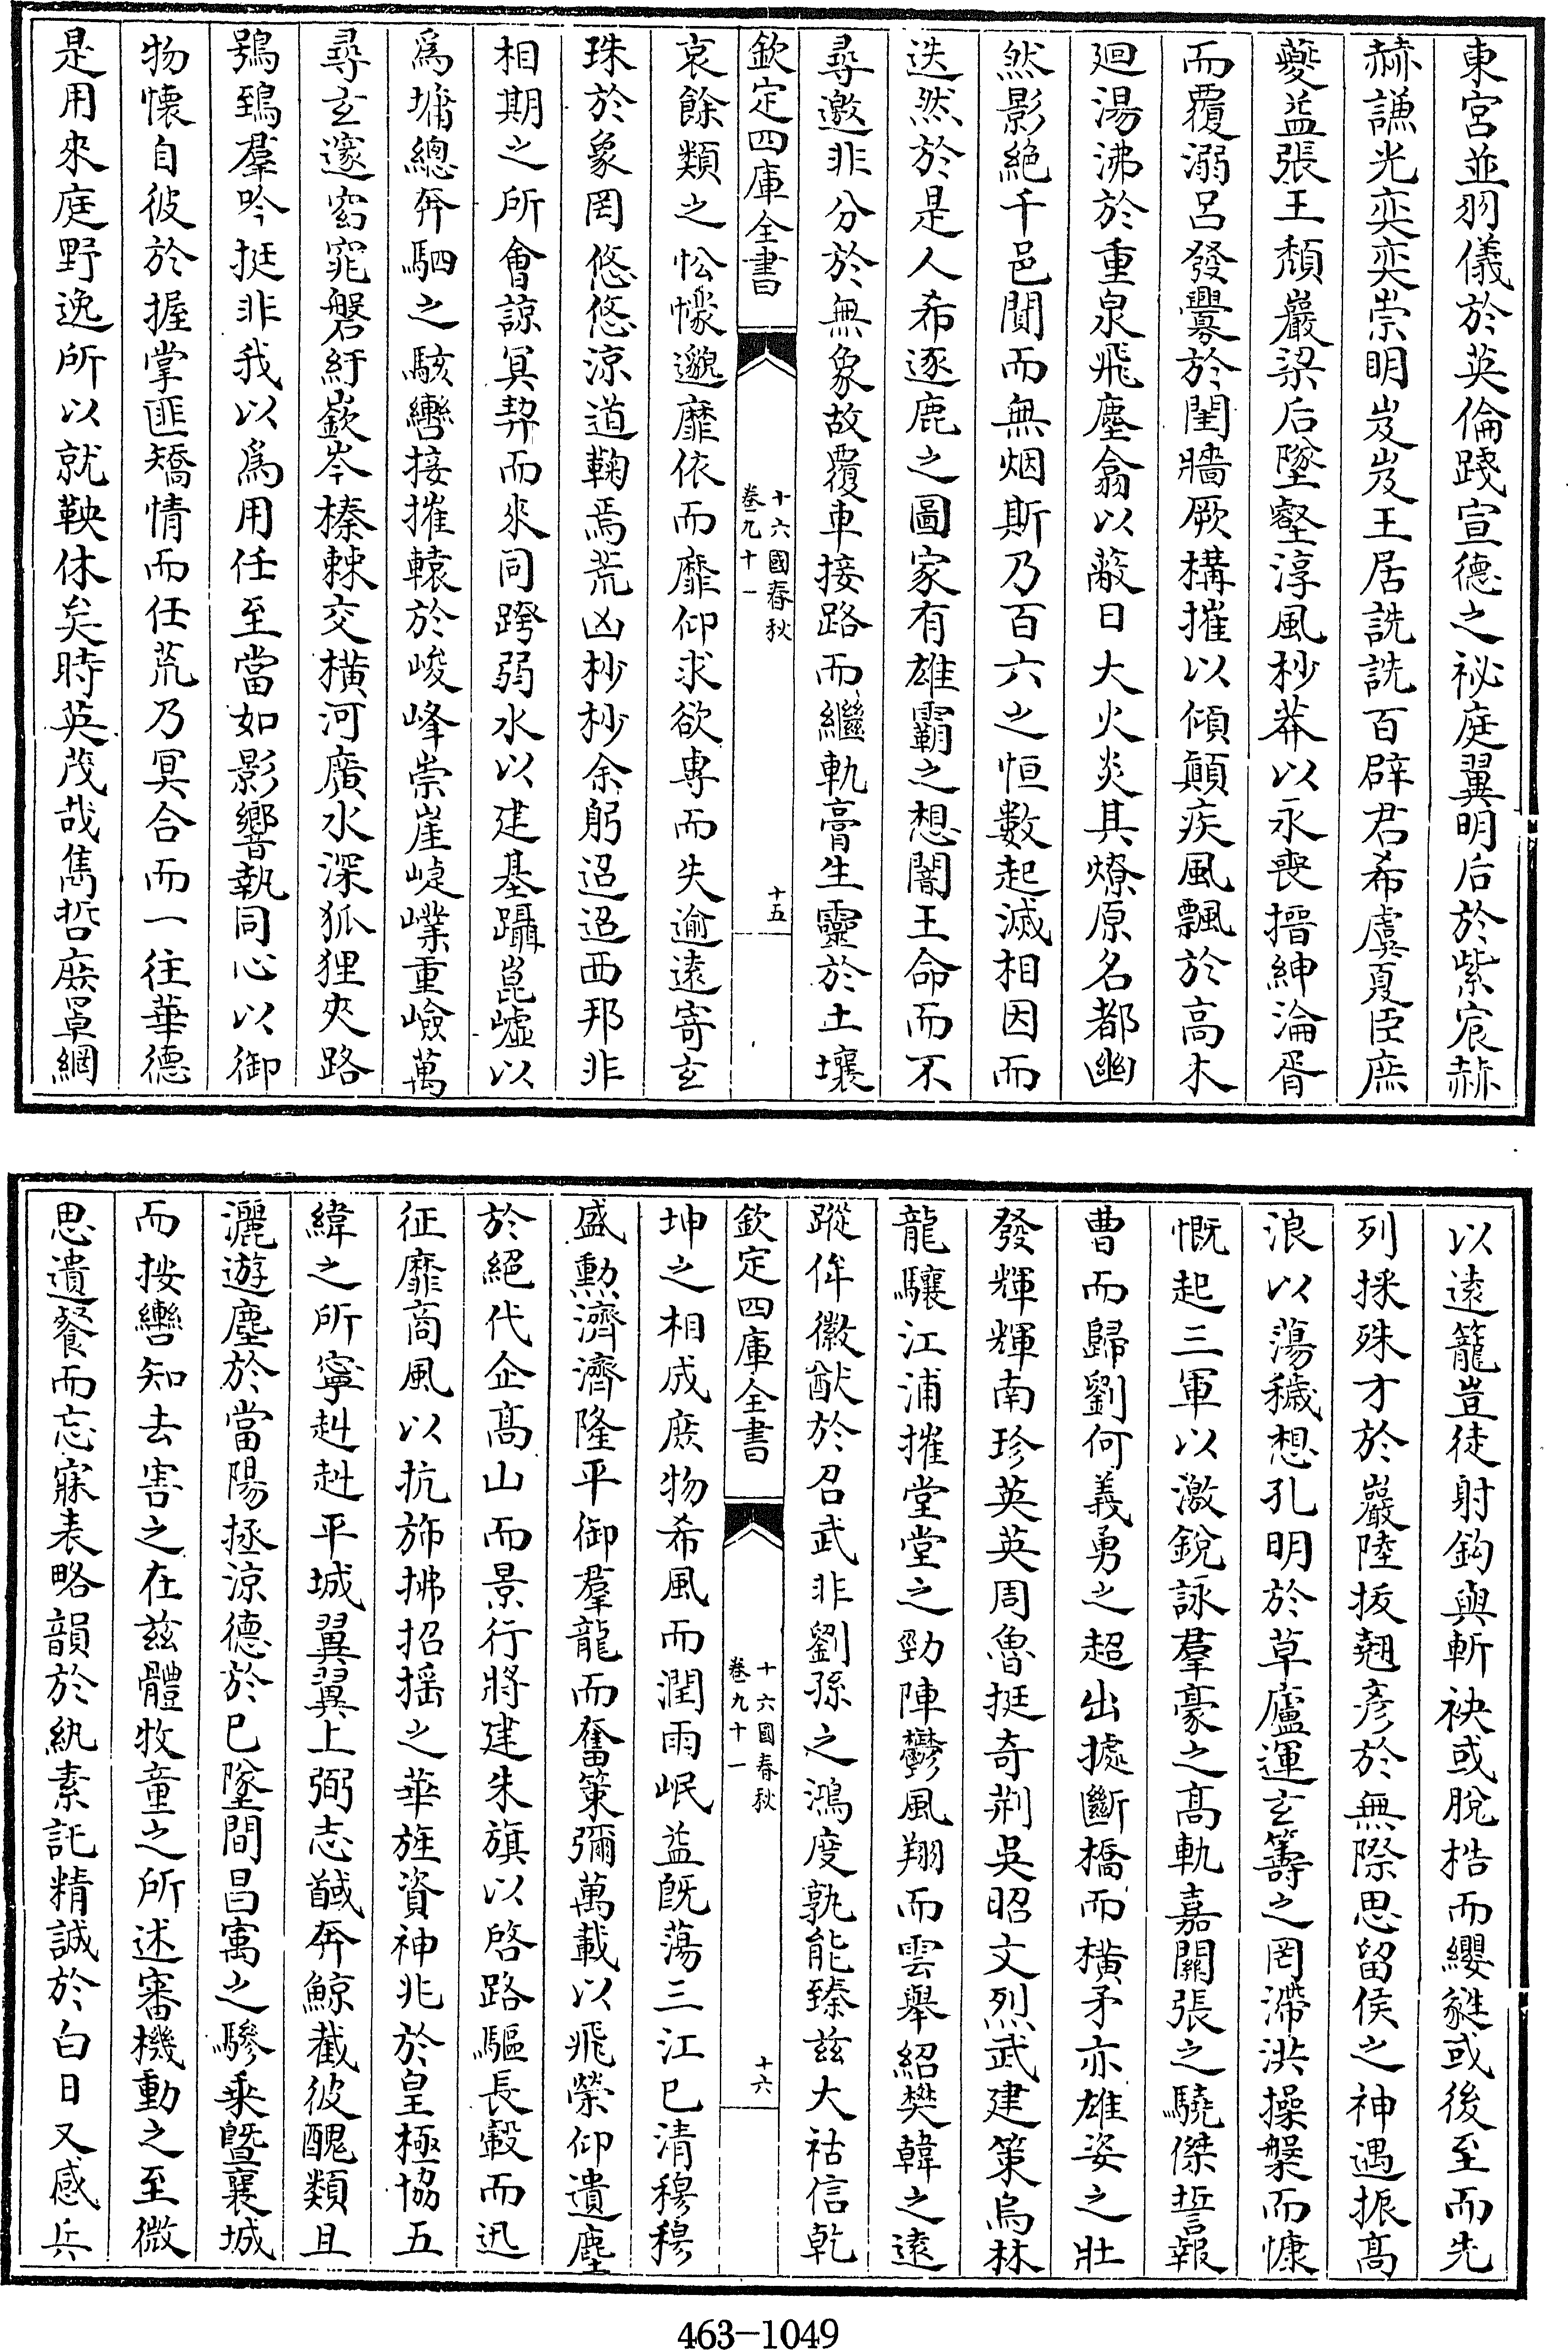 東宮並羽儀於英倫踐宣德之祕庭翼明后於紫宸赫
赫謙光奕奕崇明岌岌王居詵詵百辟君希虞夏臣庶
夔益張王頹巖梁后墜壑淳風杪莽以永喪搢紳淪胥
而覆溺呂發釁於閨牆厥構摧以傾顛疾風飄於高木
廻湯沸於重泉飛塵翕以蔽日大火炎其燎原名都幽
然影絕千邑闃而無烟斯乃百六之恒數起滅相因而
迭然於是人希逐鹿之圖家有雄霸之想闇王命而不
尋邀非分於無象故覆車接路而繼軌膏生靈於土壤
欽定四庫全書
十六國春秋
卷九十一
十五
哀餘類之忪懞邈靡依而靡仰求欲專而失逾遠寄玄
珠於象罔悠悠涼道鞠焉荒凶杪杪余躬迢迢西邦非
相期之所會諒冥契而來同跨弱水以建基躡崑墟以
爲墉總奔駟之駭轡接摧轅於峻峰崇崖崨嶫重嶮萬
尋玄邃窈窕磐紆嶔岑榛棘交橫河廣水深狐狸夾路
鴞鵄羣吟挺非我以爲用任至當如影響執同心以御
物懷自彼於握掌匪矯情而任荒乃冥合而一往華德
是用來庭野逸所以就鞅休矣時英茂哉雋哲庶罩網
以遠籠豈徒射鈎與斬袂或脫梏而纓蕤或後至而先
列採殊才於巖陸拔翹彥於無際思留侯之神遇振高
浪以蕩穢想孔明於草廬運玄籌之罔滯洪操槃而慷
慨起三軍以激銳詠羣豪之高軌嘉關張之驍傑誓報
曹而歸劉何義勇之超出據斷橋而橫矛亦雄姿之壯
發輝輝南珍英英周魯挺奇荆吳昭文烈武建策烏林
龍驤江浦摧堂堂之勁陣鬱風翔而雲舉紹樊韓之遠
蹤侔徽猷於召武非劉孫之鴻度孰能臻茲大祜信乾
欽定四庫全書
十六國春秋
卷九十一
十六
坤之相成庶物希風而潤雨岷益旣蕩三江已清穆穆
盛勳濟濟隆平御羣龍而奮策彌萬載以飛榮仰遺塵
於絕代企高山而景行將建朱旗以啓路驅長轂而迅
征靡商風以抗旆拂招搖之華旌資神兆於皇極協五
緯之所寧赳赳平城翼翼上弼志馘奔鯨截彼醜類且
灑遊塵於當陽拯涼德於已墜間昌寓之驂乘暨襄城
而按轡知去害之在茲體牧童之所述審機動之至微
思遺餐而忘寐表略韻於紈素託精誠於白日又感兵
463-1049